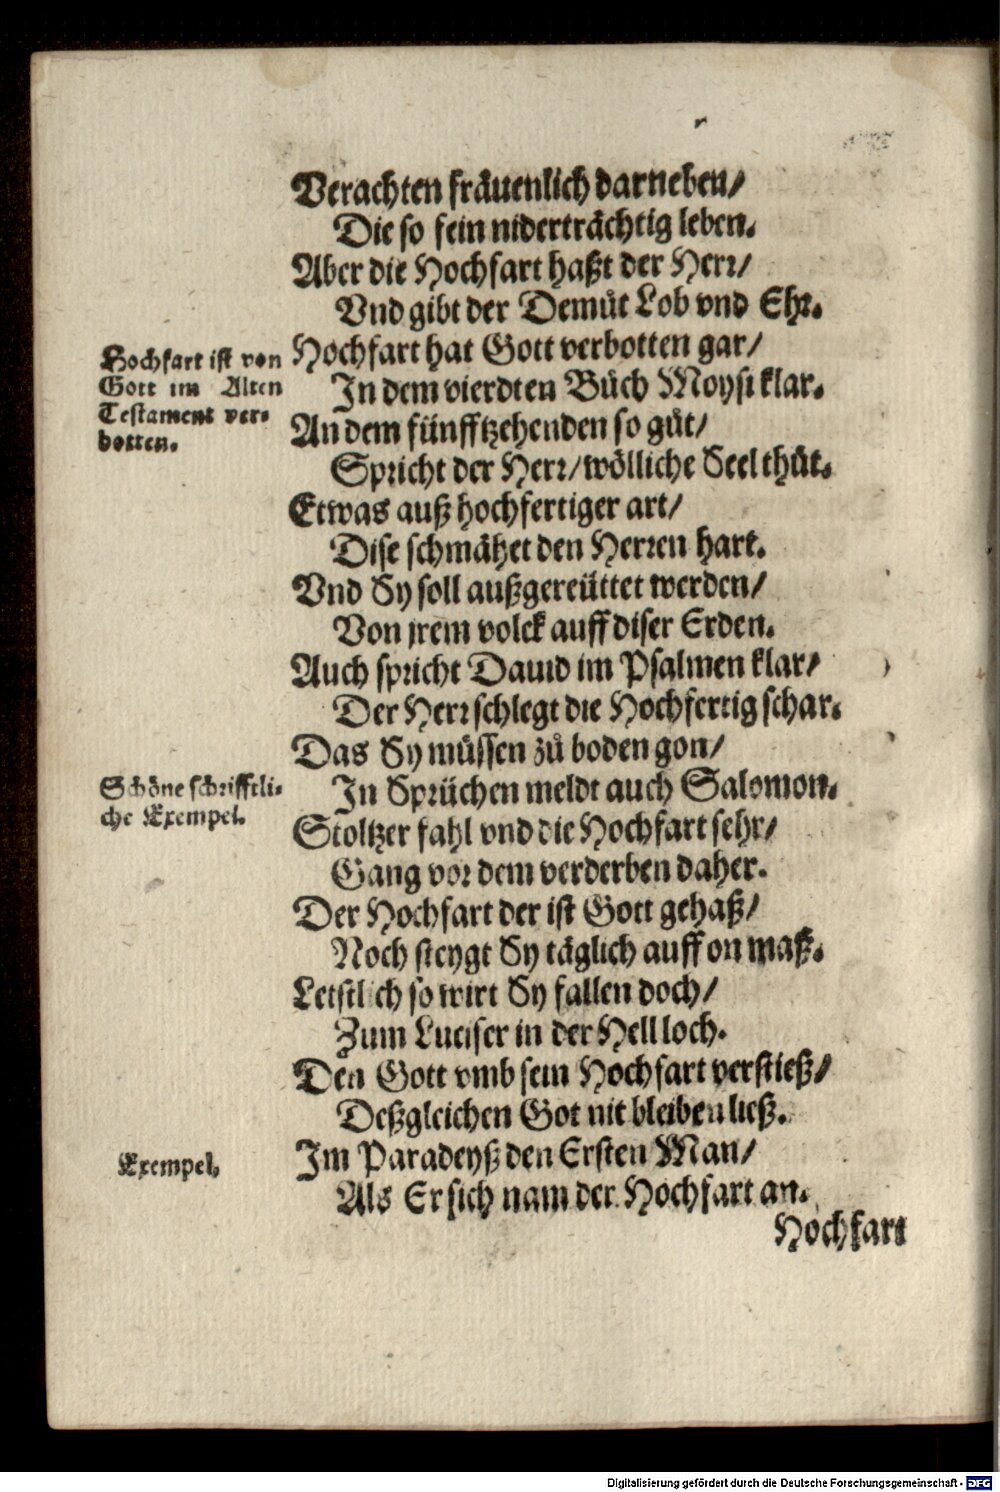 Verachten fräuenlich darneben/
Die so fein niderträchtig leben.
Aber die Hochfart haßt der Herr/
Vnd gibt der Demůt Lob vnd Ehr.
Hochfart ist von
Gott im Alten
Testament ver-
botten.
Hochfart hat Gott verbotten gar/
In dem vierdten Bůch Moysi klar.
An dem fünfftzehenden so gůt/
Spricht der Herr/wölliche Seel thůt.
Etwas auß hochfertiger art/
Dise schmähet den Herren hart.
Vnd Sy soll außgereüttet werden/
Von jrem volck auff diser Erden.
Auch spricht Dauid im Psalmen klar/
Der Herr schlegt die Hochfertig schar.
Das Sy müssen zů boden gon/
Schöne schrifftli-
che Exempel.
In Sprüchen meldt auch Salomon.
Stoltzer fahl vnd die Hochfart sehr/
Gang vor dem verderben daher.
Der Hochfart der ist Gott gehaß/
Noch steygt Sy täglich auff on maß.
Letstlich so wirt Sy fallen doch/
Zum Lucifer in der Hell loch.
Den Gott vmb sein Hochfart verstieß/
Deßgleichen Got nit bleiben ließ.
Exempel.
Im Paradeyß den Ersten Man/
Als Er sich nam der Hochfart an.
Hochfart
Digitalisierung gefördert durch die Deutsche Forschungsgemeinschaft - DFG